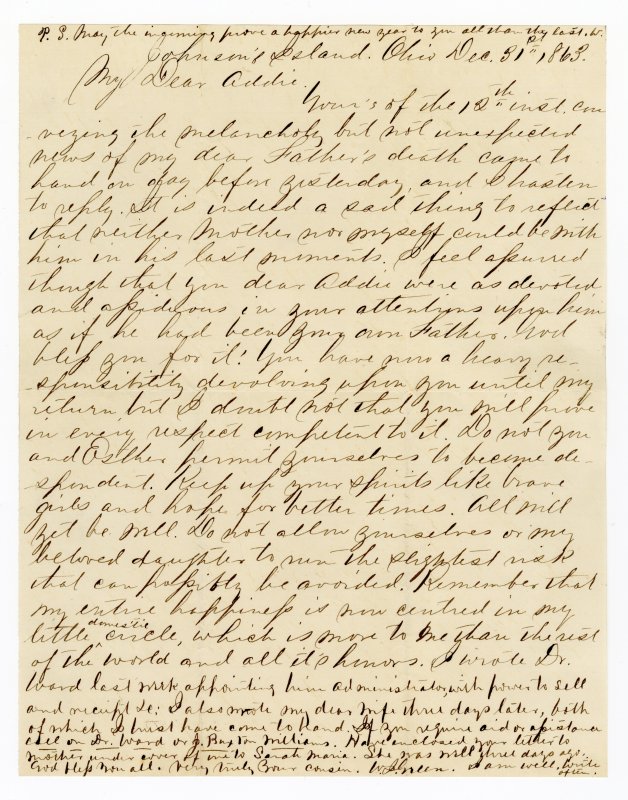 P. S. May the incoming prove a happier new year to you all than the last. W.
Johnson's Island. Ohio Dec. 31st, 1863.
My Dear Addie.
Your's of the 12th inst. con
-veying the melancholy but not unexpected
news of my dear Father's death came to
hand on day before yesterday, and I hasten
to reply. It is indeed a sad thing to reflect
that neither Mother nor myself could be with
him in his last moments. I feel assured
though that you dear Addie were as devoted
and assiduous in your attentions upon him
as if he had been your own Father. God
bless you for it! You have now a heavy re-
-sponsibility devolving upon you until my
return but I doubt not that you will prove
in every respect competent to it. Do not you
and Esther permit yourselves to become de-
-spondent. Keep up your spirits like brave
girls and hope for better times. All will
yet be well. Do not allow yourselves or my
beloved daughter to run the slightest risk
that can possibly be avoided. Remember that
my entire happiness is now centred in my
little domestic circle, which is more to me than the rest
of the world and all it's honors. I wrote Dr.
Ward last week appointing him administrator, with power to sell
and receipt &c: I also wrote my dear wife three days later, both
of which I trust have come to hand. If you require aid or assistance
call on Dr. Ward or J. Buxton Williams. Have enclosed your letter to
mother under cover of one to Sarah Maria. She was well three days ago.
God bless you all. Very truly Your cousin. W. J. Green. I am well, write
often.